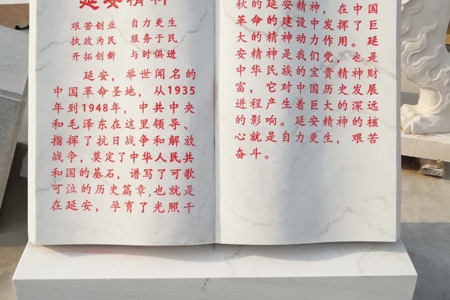 延安精神
艰苦创业 自力更生
执政为民 服务于民
开拓创新 与时俱进
延安，举世闻名的
中国革命圣地，从1935
年到1948年，中共中央
和毛泽东在这里领导、
指挥了抗日战争和解放
战争，奠定了中华人民共
和国的基石，谱写了可歌
可泣的历史篇章，也就是
在延安，孕育了光照千
秋的延安精神，在中国
革命的建设中发挥了巨
大的精神动力作用。延
安精神是我们党，也是
中华民族的宝贵精神财
富，它对中国历史发展
进程产生着巨大的深远
的影响。延安精神的核
心就是自力更生，艰苦
奋斗。